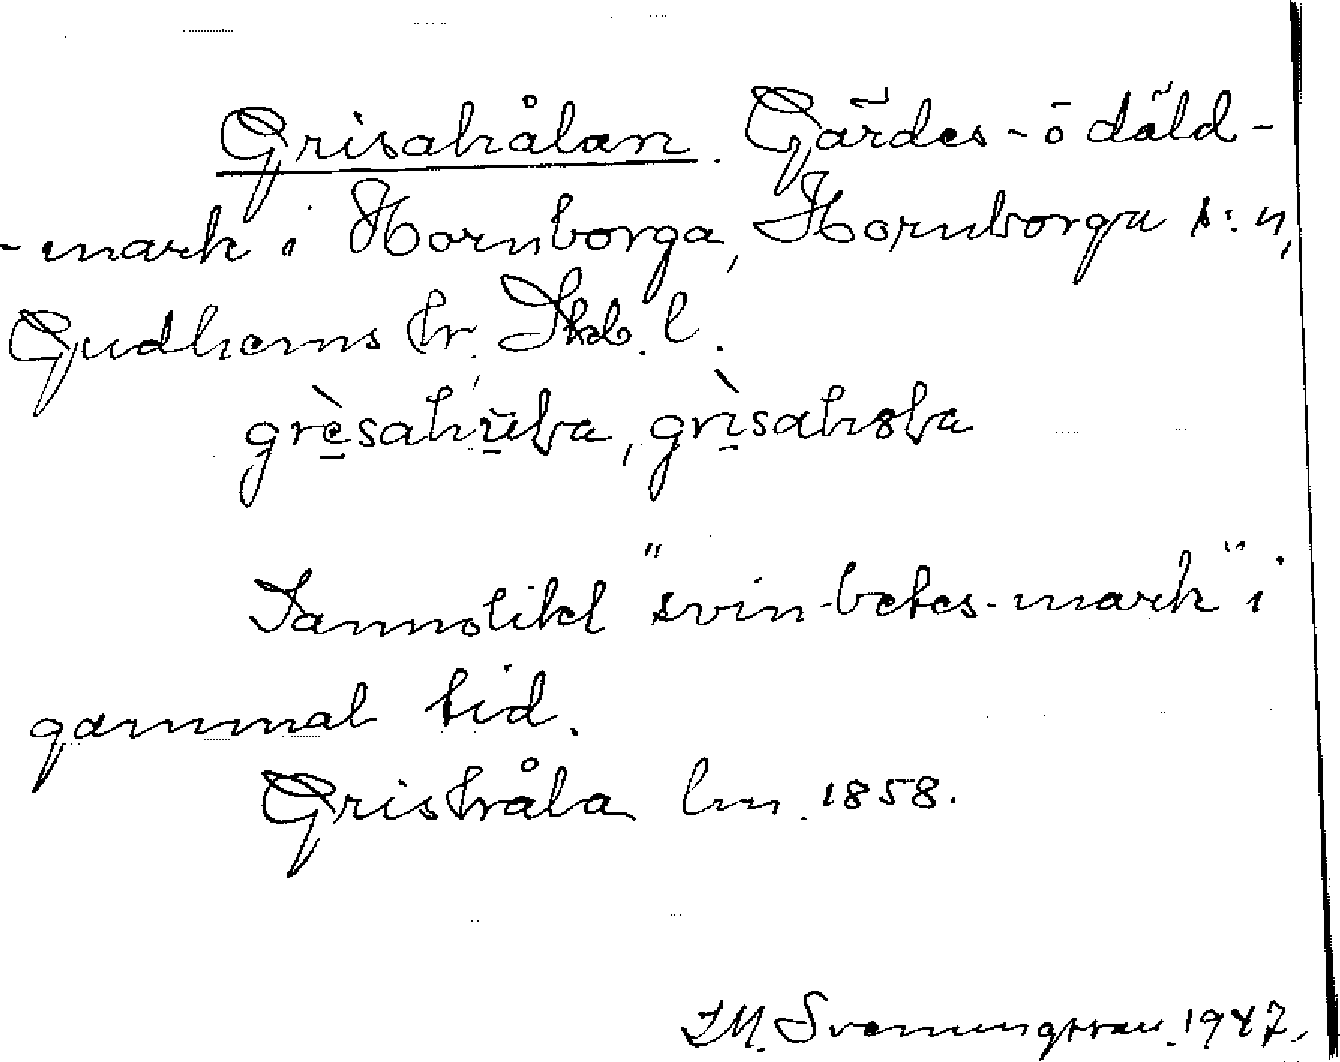 Grisahålan. Gärdes- o däld-
-mark i Hornborga, Hornborga s:n,
Gudhems hr, Skb. l.
grèsahūla, grìsahola
Sannolikt "svin-betes-mark" i
gammal tid.
Grishåla lm. 1858.
J.M. Svenungsson. 1947.